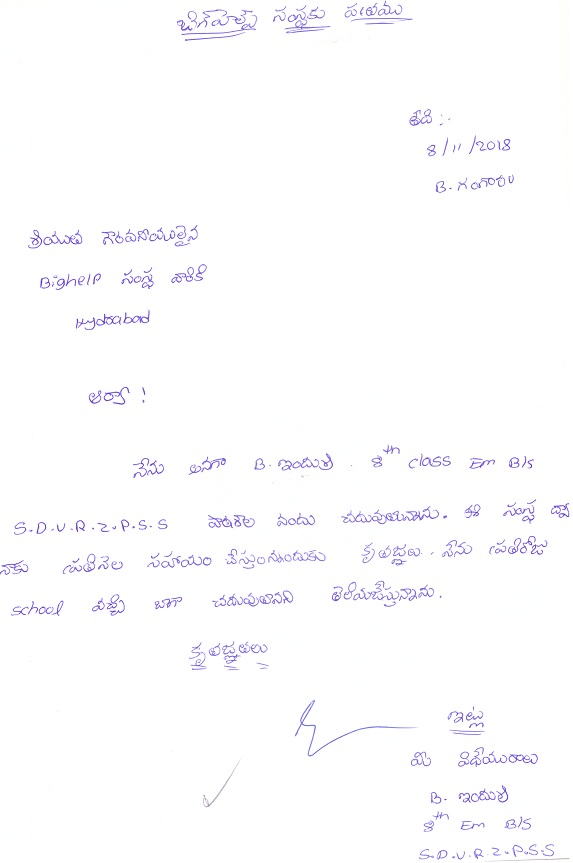 బిగ్‌హెల్ప్ సంస్థకు పత్రము
తేది :-
8/11/2018
B. గంగారం
శ్రీయుత గౌరవనీయులైన
BigHelp సంస్థ వారికి
Hyderabad
ఆర్యా !
నేను అనగా B. ఇందుశ్రీ. 8th class Em B/s
S.D.V.R.Z.P.S.S పాఠశాల యందు చదువుతున్నాను. ఈ సంస్థ ద్వారా
నాకు ప్రతినెల సహాయం చేస్తున్నందుకు కృతజ్ఞతలు. నేను ప్రతిరోజు
school వచ్చి బాగా చదువుతానని తెలియచేస్తున్నాను.
కృతజ్ఞతలు
ఇట్లు
మీ విధేయురాలు
B. ఇందుశ్రీ
8th Em B/s
S.D.V.R.Z.P.S.S